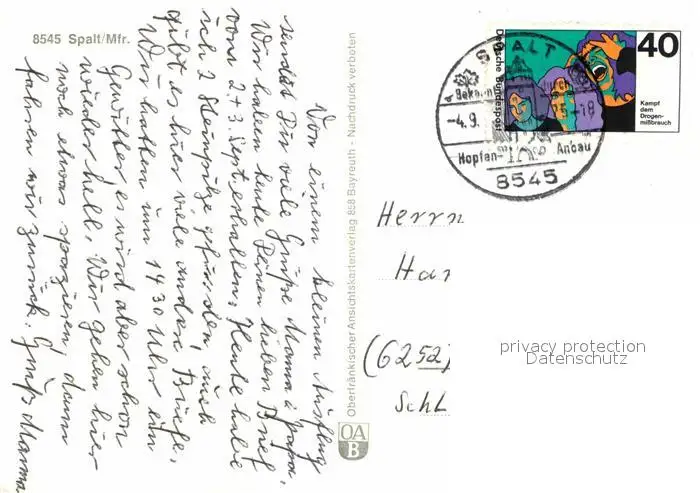 8545 Spalt/Mfr.
Von einem kleinen Ausflug
sendet Dir viele Grüße Mama u. Papa.
Wir haben heute Deinen lieben Brief
vom 2+3. Sept. erhalten. Heute habe
ich 2 Steinpilze gefunden, auch
gibt es hier viele andere Briefe.
Wir hatten um 14 30 Uhr ein
Gewitter es wird aber schon
wieder hell. Wir gehen hier
noch etwas spazieren, dann
fahren wir zurück. Gruß Mama
Oberfränkischer Ansichtskartenverlag 858 Bayreuth - Nachdruck verboten
OA
B
Deutsche Bundespost
40
Kampf
dem
Drogen-
mißbrauch
SPALT
-4.9. -18
Hopfen- Anbau
8545
Herrn
Har
(6252)
Schl
privacy protection
Datenschutz